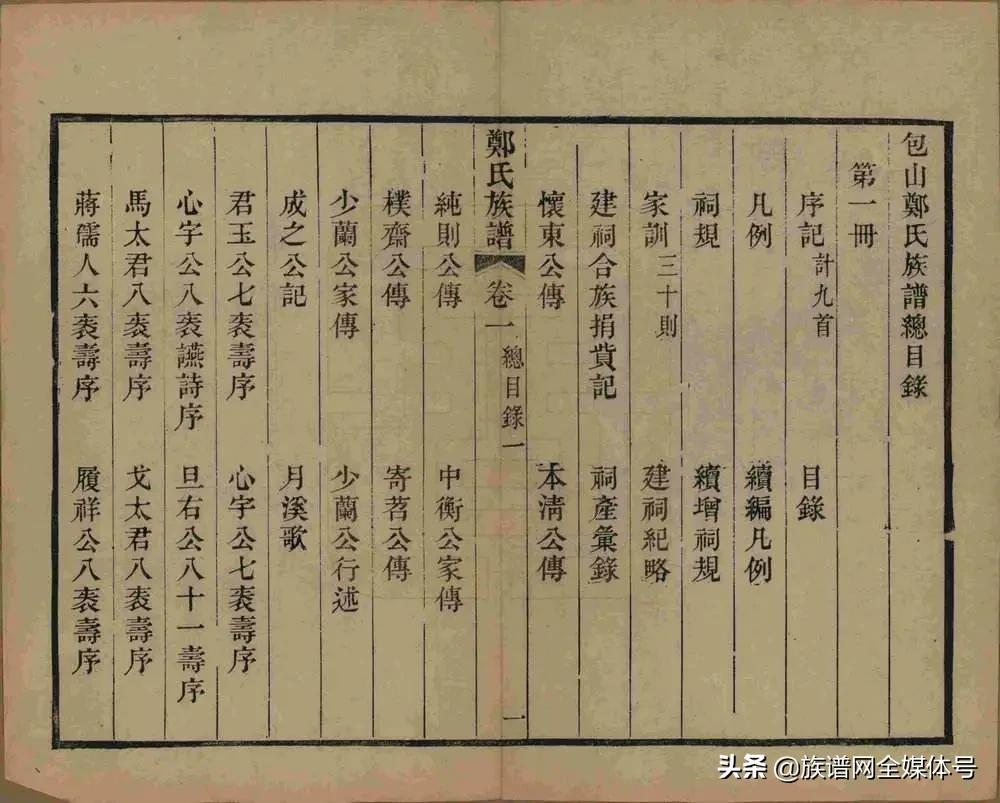 包山鄭氏族譜總目錄
第一冊
序記 計九首 目錄
凡例 續編凡例
祠規 續增祠規
家訓 三十則 建祠紀略
建祠合族捐貲記 祠產彙錄
懷東公傳 本淸公傳
鄭氏族譜 卷一 總目錄一 一
純則公傳 中衡公家傳
樸齋公傳 寄茗公傳
少蘭公家傳 少蘭公行述
成之公記 月溪歌
君玉公七袠壽序 心字公七袠壽序
心字公八袠讌詩序 旦右公八十一壽序
馬太君八袠壽序 戈太君八袠壽序
蔣儒人六袠壽序 履祥公八袠壽序
头条 @族谱网全媒体号